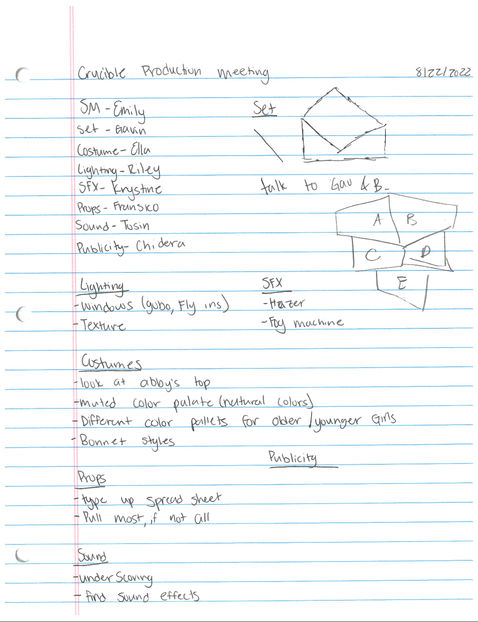 Crucible Production meeting 8/22/2022
SM - Emily
Set - Gavin
Costume - Ella
Lighting - Riley
SFX - Krystine
Props - Fransko
Sound - Tusin
Publicity - Chidera
Set
talk to Gav & B.
A B
C D
E
Lighting
- Windows (gobo, Fly ins)
- Texture
SFX
- Hazer
- Fog machine
Costumes
- look at abby's top
- muted color palate (natural colors)
- Different color pallets for older/younger Girls
- Bonnet styles
Publicity
Props
- type up spread sheet
- Pull most, if not all
Sound
- under Scoring
- find sound effects